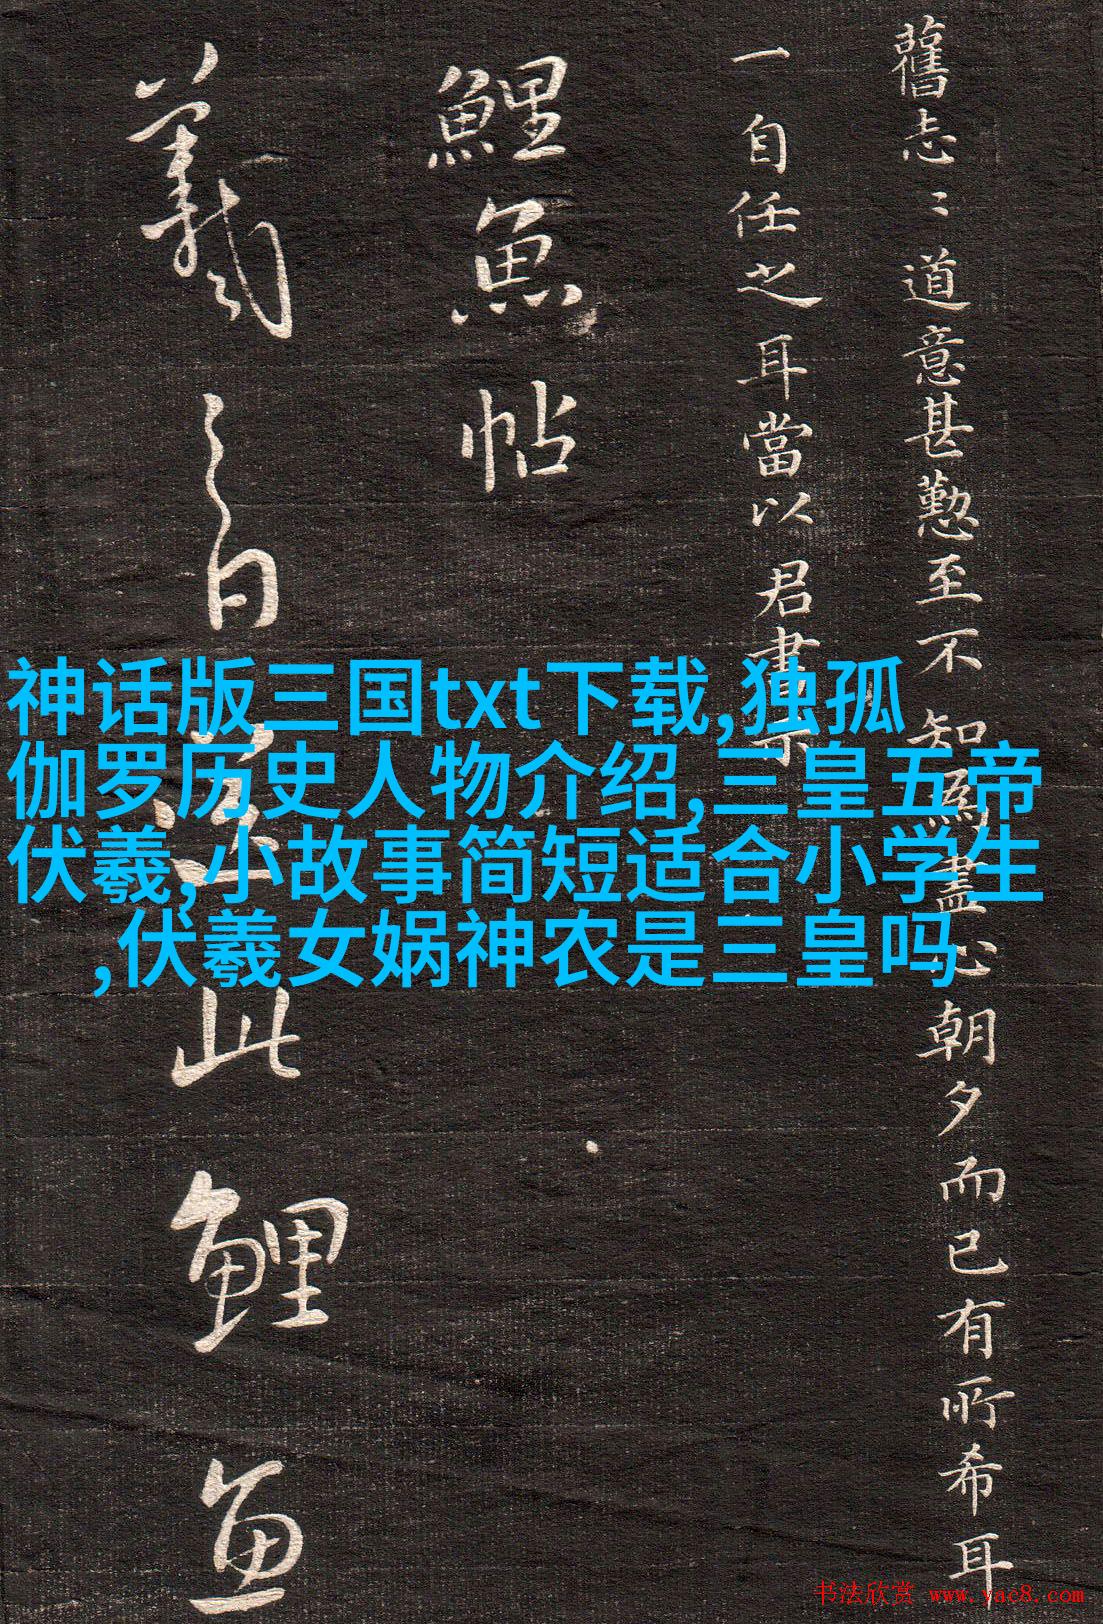 舊志〻道意甚懃至不知為盡心朝夕而已有所希耳
一自任之耳當以君書示
鯉魚帖
羲之白送此鯉魚
神话版三国txt下载,独孤
伽罗历史人物介绍,三皇五帝
伏羲,小故事简短适合小学生
,伏羲女娲神农是三皇吗
书法欣赏 www.yac8.com